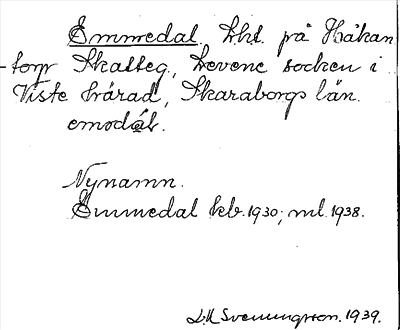 Emmedal, lht. på Håkan-
torp Skatteg., Levene socken i
Viste härad, Skaraborgs län.
emədàl.
Nynamn.
Emmedal kb. 1930; ml. 1938.
Svenungsson. 1939.